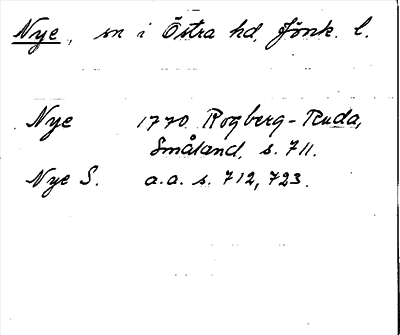 Nye, sn i Östra hd, Jönk. l.
Nye 1770 Rogberg-Ruda,
Småland, s. 711.
Nye S. a.a. s. 712, 723.